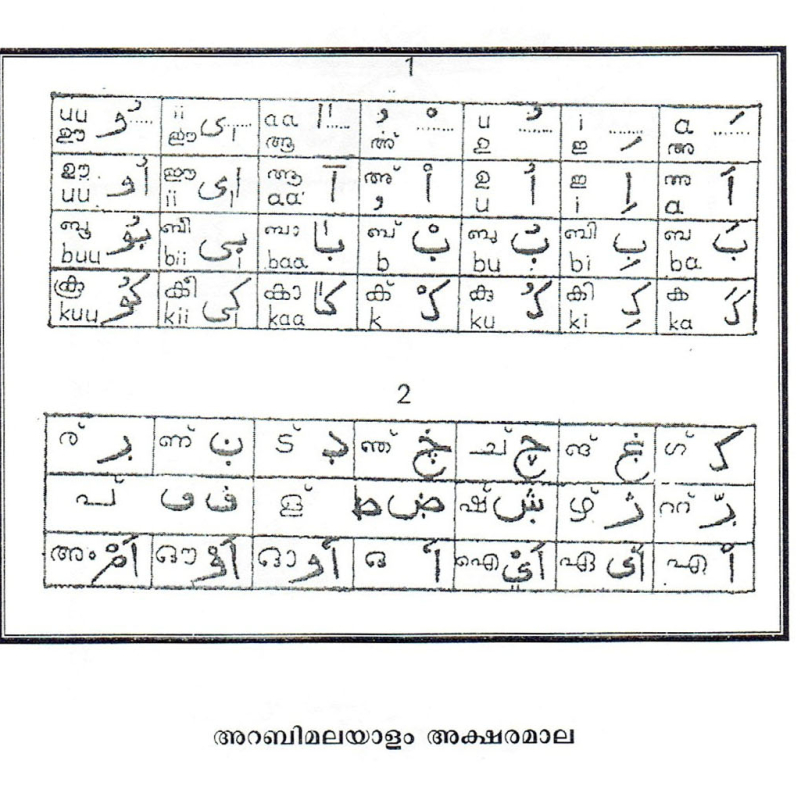 1
uu ُو ii ِى aa َا u ُ i ِ a َ
ഊ ഈ ആ അ് ഉ ഇ അ
ഊ أُو ഈ إِى ആ آ അ് أْ ഉ أُ ഇ إِ അ أَ
uu ii aa u i a
ബൂ بُو ബീ بِى ബാ بَا ബ് بْ ബു بُ ബി بِ ബ بَ
buu bii baa b bu bi ba
കൂ كُو കീ كِى കാ كَا ക് كْ കു كُ കി كِ ക كَ
kuu kii kaa k ku ki ka
2
ര് ണ് ട് ച് چ ഗ്
പ് ള് ض ഷ് ഴ് റ്റ്
അം ഔ ഓ ഒ ഐ ഏ എ
അറബിമലയാളം അക്ഷരമാല